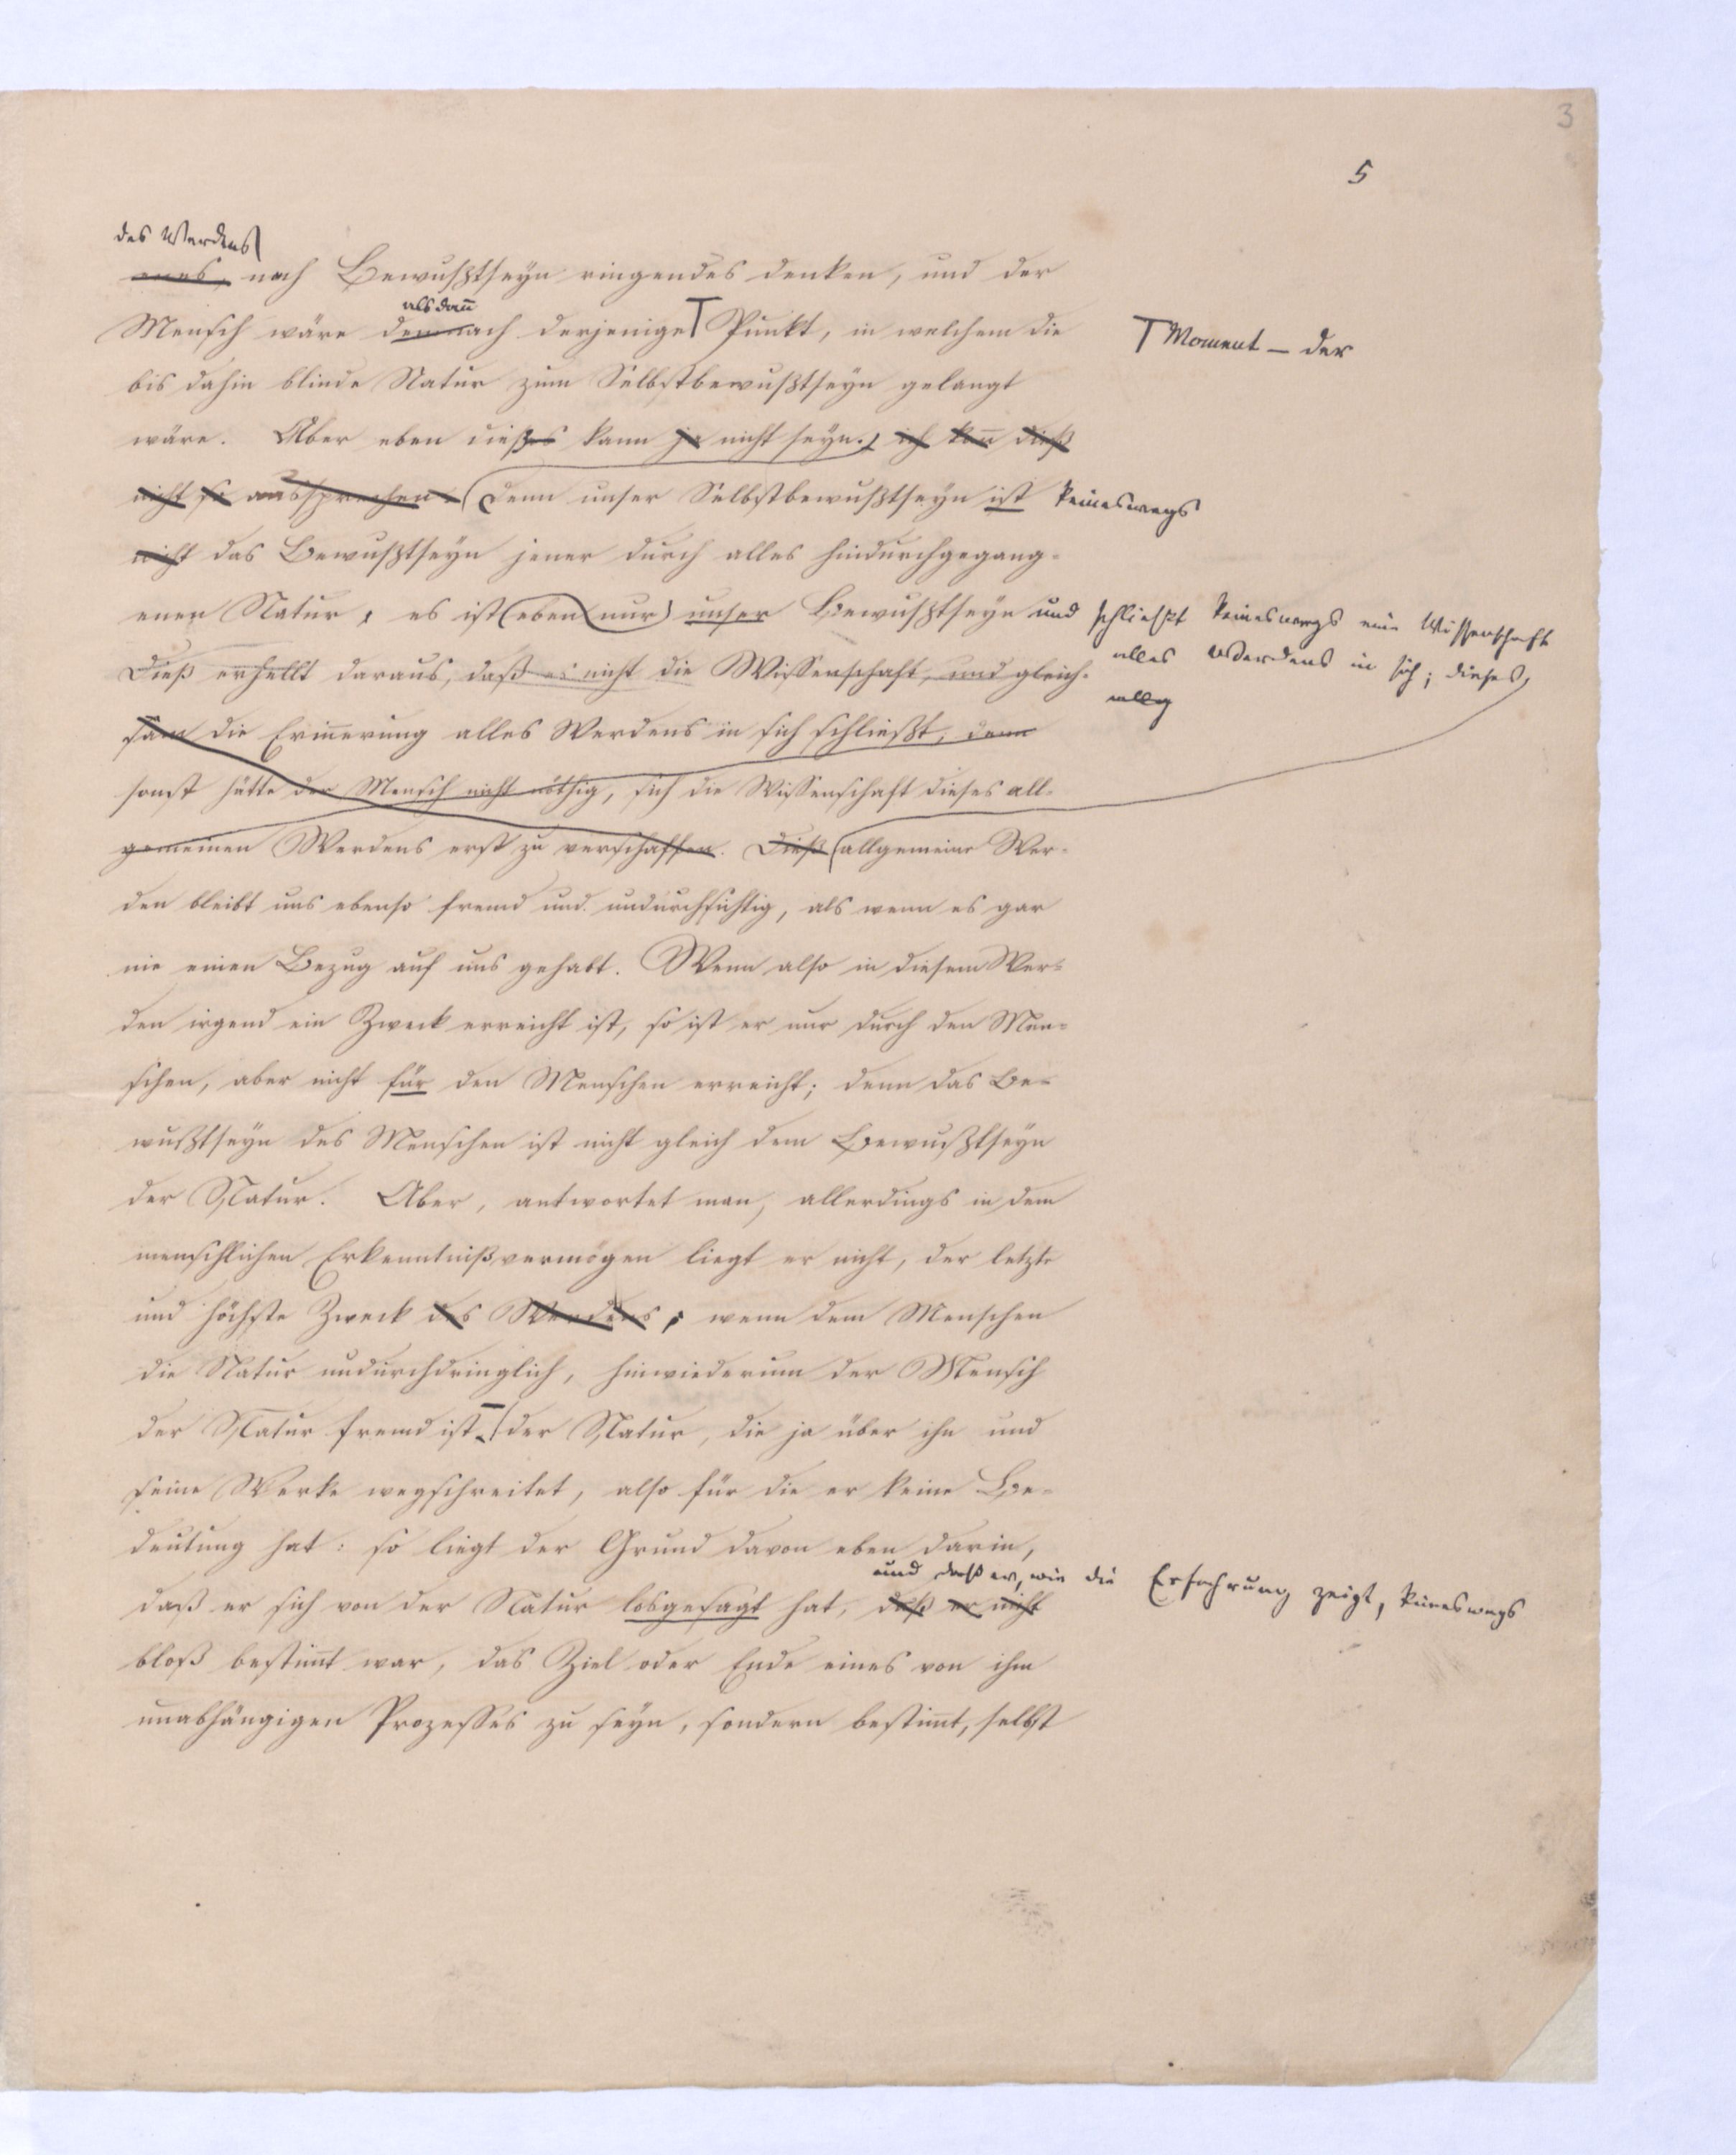 3
5
des Werdens
enes, nach Bewußtseyn ringendes denken, und der
alsdañ
Mensch wäre demnach derjenige Punkt, in welchem die
T Moment – der
bis dahin blinde Natur zum Selbstbewußtseyn gelangt
wäre. Aber eben dießes kann ja nicht seyn; ich kañ dieß
nicht so aussprechen. Denn unser Selbstbewußtseyn ist keineswegs
nicht das Bewußtseyn jener durch alles hindurchgegang-
enen Natur, es ist (eben nur) unser Bewußtseyn und schließt keineswegs eine Wissenschaft
alles Werdens in sich; dieses
Dieß erhellt daraus, daß es nicht die Wissenschaft, und gleich-
sam die Eriñerung alles Werdens in sich schließt, denn
sonst hätte der Mensch nicht nöthig, sich die Wissenschaft dieses all-
gemeinen Werdens erst zu verschaffen. Dieß allgemeine Wer-
den bleibt uns ebenso fremd und undurchsichtig, als wenn es gar
nie einen Bezug auf uns gehabt. Wenn also in diesem Wer-
den irgend ein Zweck erreicht ist, so ist er nur durch den Men-
schen, aber nicht für den Menschen erreicht; denn das Be-
wußtseyn des Menschen ist nicht gleich dem Bewußtseyn
der Natur. Aber, antwortet man, allerdings in dem
menschlichen Erkenntnißvermögen liegt er nicht, der letzte
und höchste Zweck des Werdens; wenn dem Menschen
die Natur undurchdringlich, hinwiederum der Mensch
der Natur fremd ist – der Natur, die ja über ihn und
seine Werke wegschreitet, also für die er keine Be-
deutung hat: so liegt der Grund davon eben darin,
und daß er, wie die Erfahrung zeigt, keineswegs
daß er sich von der Natur losgesagt hat, daß er nicht
bloß bestim̃t war, das Ziel oder Ende eines von ihm
unabhängigen Prozesses zu seyn, sondern bestim̃t, selbst